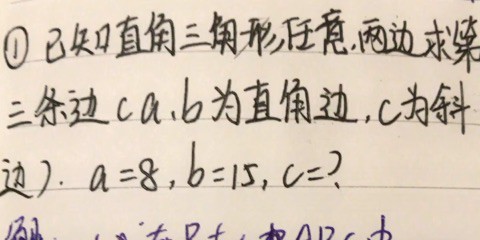 ① 已知直角三角形,任意两边求第
三条边(a、b为直角边,c为斜
边). a=8,b=15,c=?